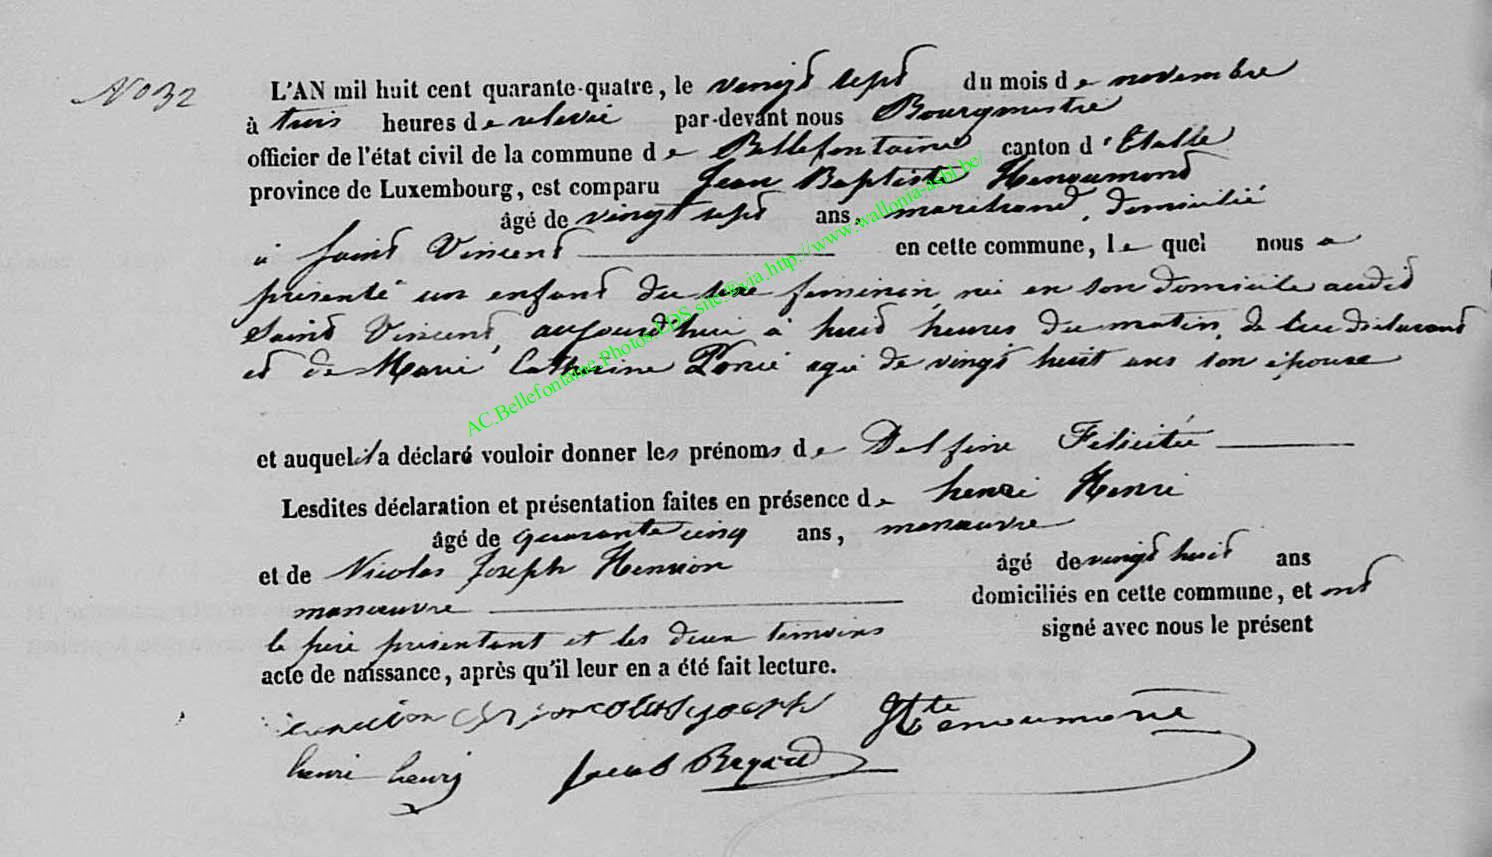 No 32
L'AN mil huit cent quarante-quatre, le vingt sept du mois de novembre
à trois heures de relevée par-devant nous Bourgmestre
officier de l'état civil de la commune de Bellefontaine canton d'Etalle
province de Luxembourg, est comparu Jean Baptiste Henoumont
âgé de vingt sept ans, marchand, domicilié
à Saint Vincent en cette commune, lequel nous a
présenté un enfant du sexe feminin, né en son domicile audit
Saint Vincent, aujourd'hui à huit heures du matin, de lui déclarant
et de Marie Catherine agée de vingt huit ans son épouse
et auquel il a déclaré vouloir donner les prénoms de Delfine Félicitée
Lesdites déclaration et présentation faites en présence de henri Henri
âgé de quarante cinq ans, manœuvre
et de Nicolas Joseph Henrion âgé de vingt huit ans
manœuvre domiciliés en cette commune, et ont
le père présentant et les deux temoins signé avec nous le présent
acte de naissance, après qu'il leur en a été fait lecture.
joseph Henoumont
henri henri Jacob Bayard
AC.Bellefontaine.Photos.LDS site @via http://www.wallonia-asbl.be/